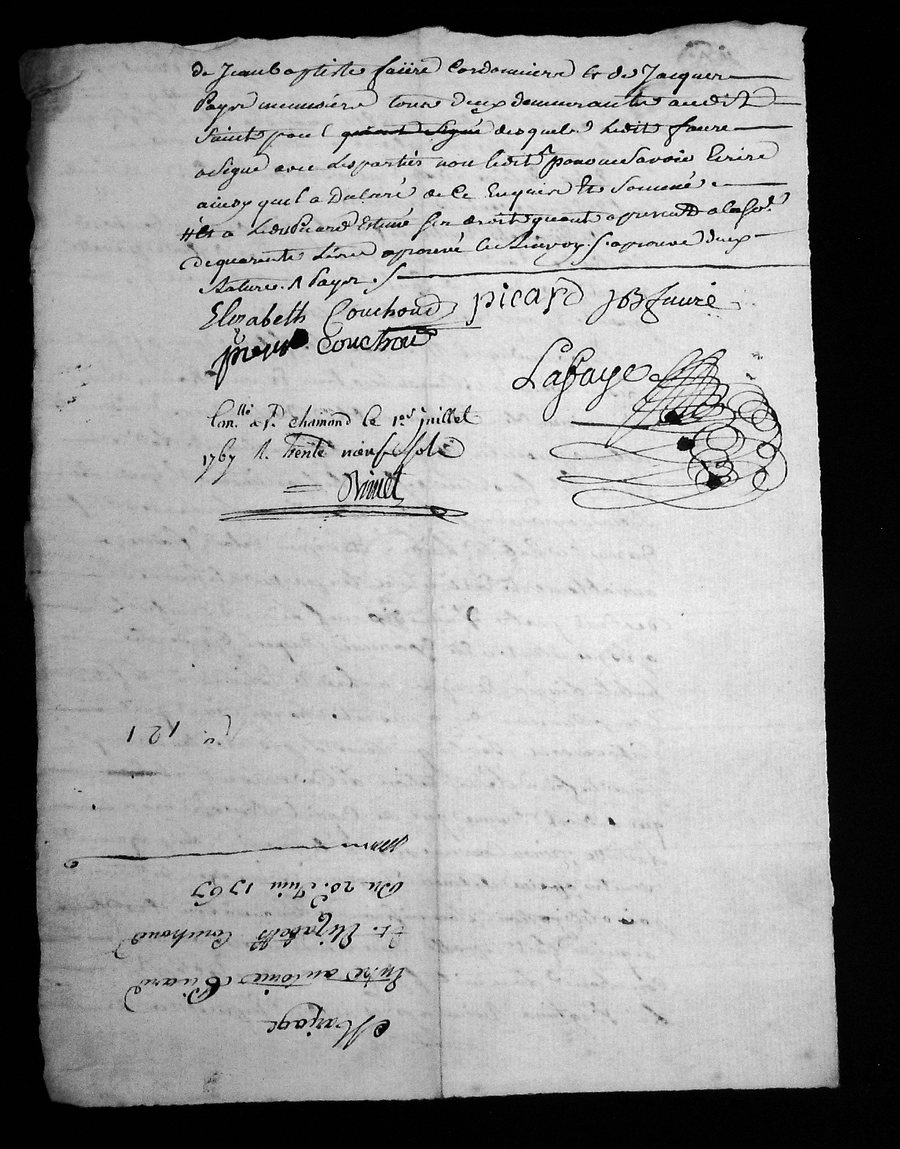 de Jean baptiste faüre Cordonniere & de Jacques
Payre menusiére tous deux demeurants audit
Saint paul qui ont Signé desquels Ledit faure
a Signé avec Les parties non Ledit pour ne Savoir Ecrire
ainsy quil a Déclaré de Ce Enquis Et Sommé
Et a Led Picard Estimé Ses droits
de quarente Livre aprouvé Le Renvoy
Rature
Elizabeth Couchoud picard JBfaure
Couchou
Laffaye
Con.llé à St. chamond le 1er. juillet
1767 R. trente neuf sols
Mariage
Entre antoine Picard
et Elizabeth Couchoud
Du 28e. Juin 1767
121